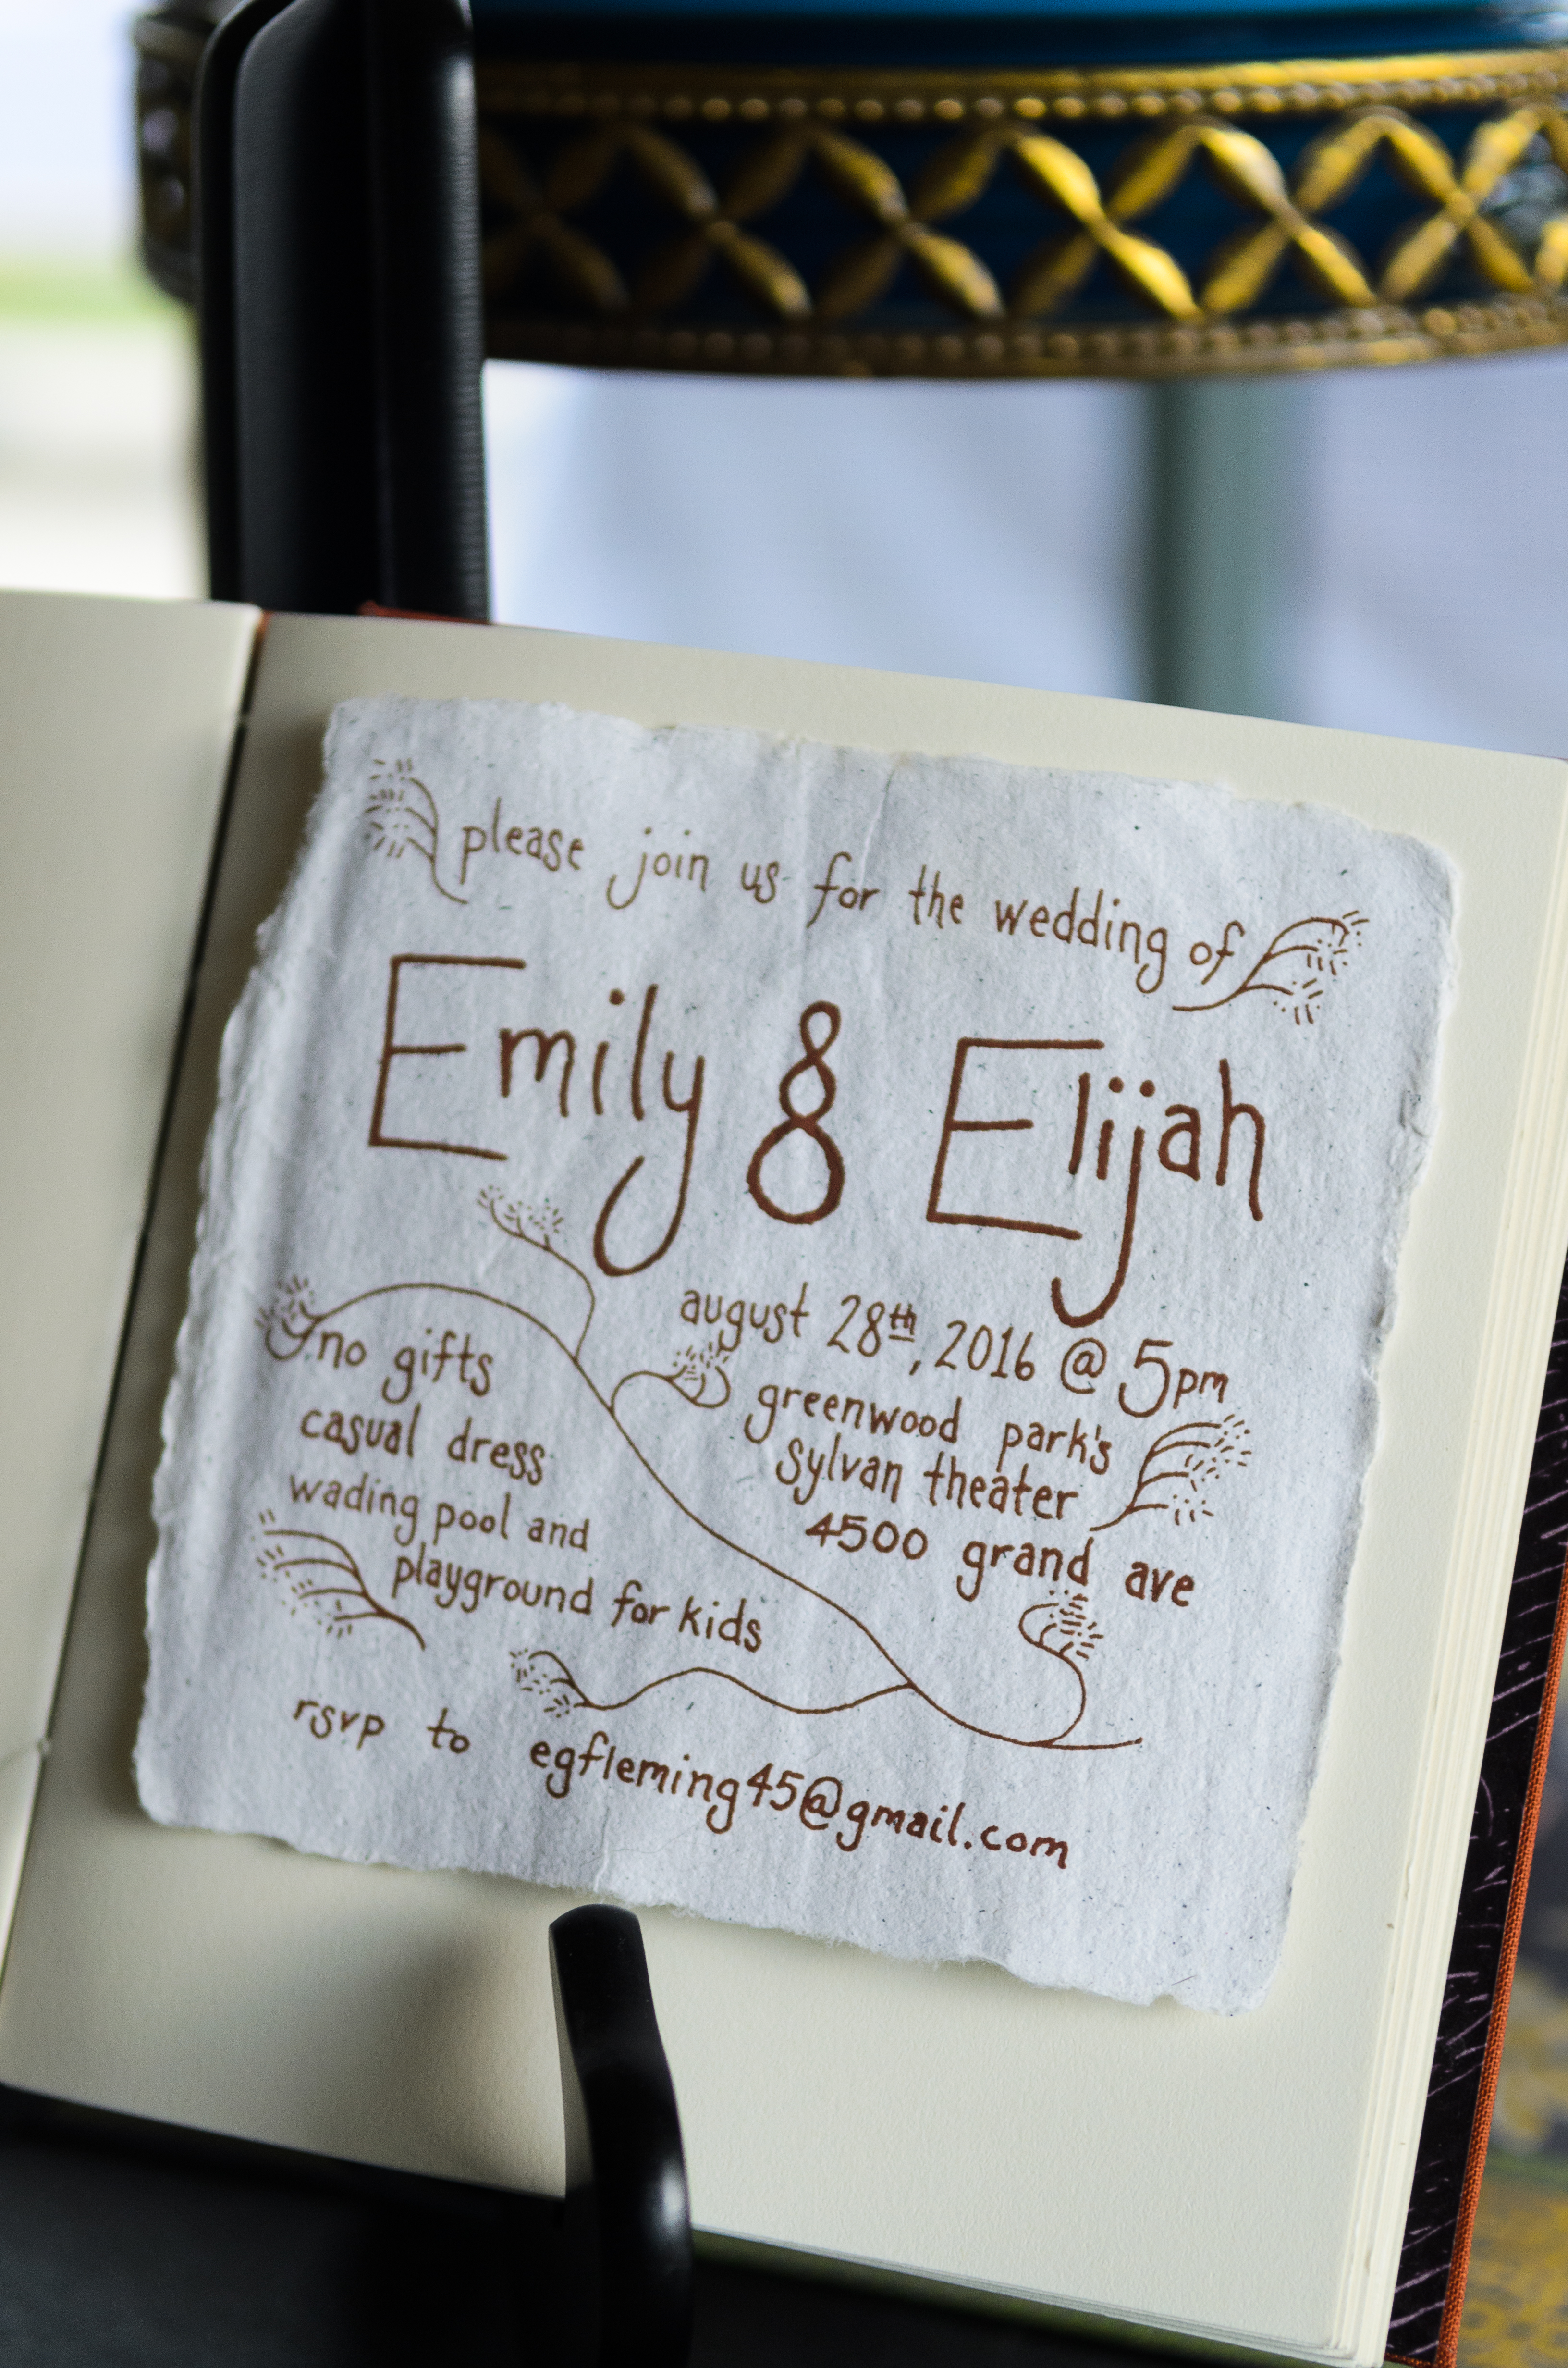 please join us for the wedding of
Emily & Elijah
august 28th, 2016 @ 5pm
greenwood park's
sylvan theater
4500 grand ave
no gifts
casual dress
wading pool and
playground for kids
rsvp to egfleming45@gmail.com